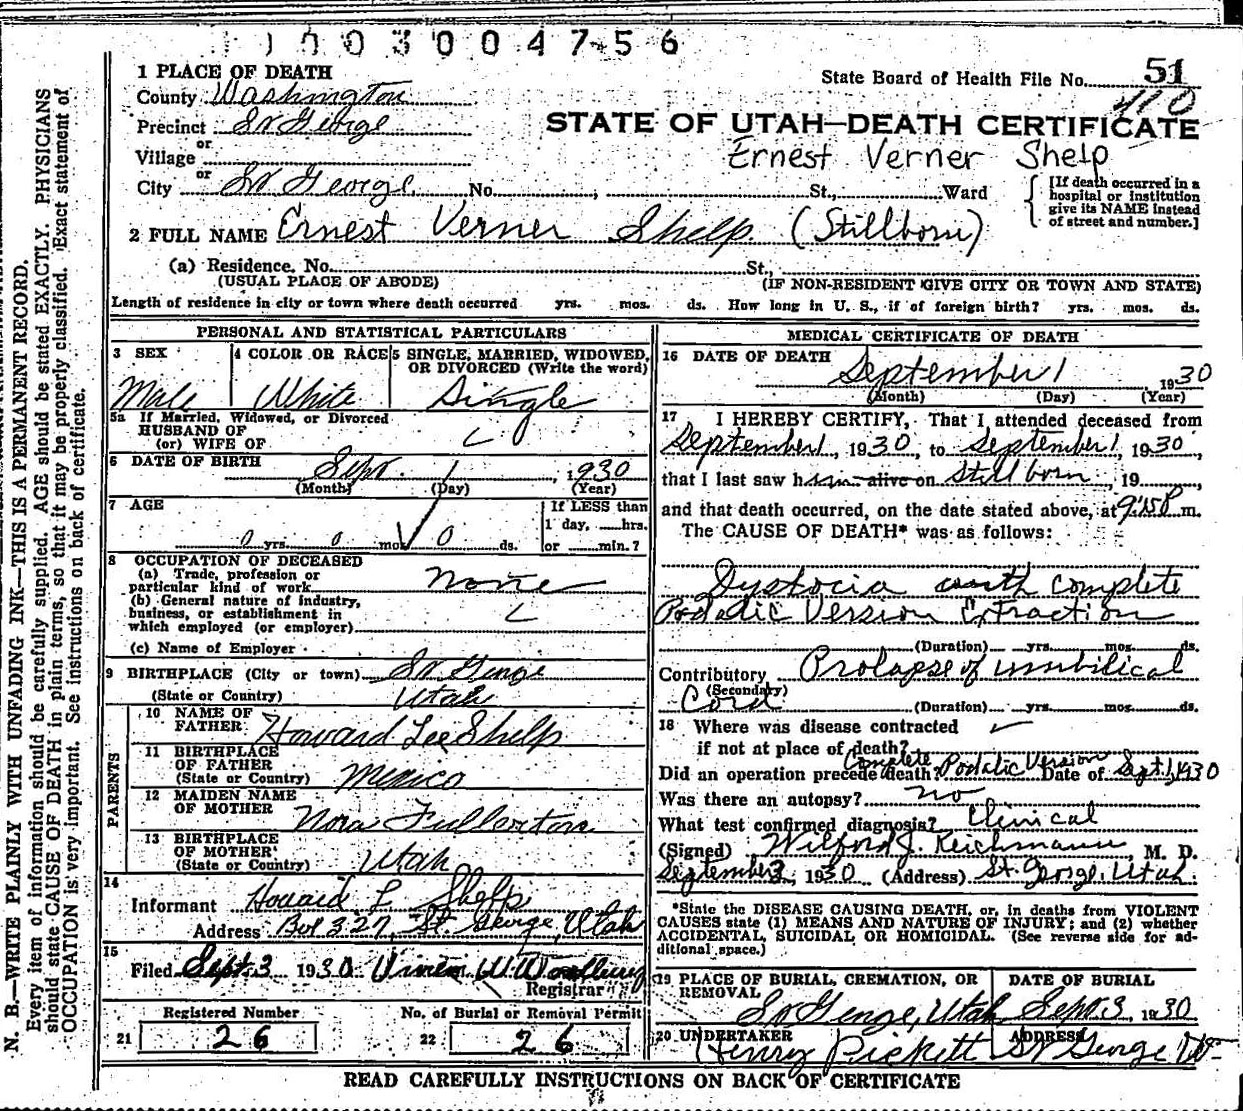 1003004756
1 PLACE OF DEATH
State Board of Health File No. 51
County Washington
410
Precinct St George
STATE OF UTAH—DEATH CERTIFICATE
or
Village
Ernest Verner Shelp
or
City St George No. , St., Ward
[If death occurred in a hospital or institution give its NAME instead of street and number.]
2 FULL NAME Ernest Verner Shelp. (Stillborn)
(a) Residence. No. St.,
(USUAL PLACE OF ABODE) (IF NON-RESIDENT GIVE CITY OR TOWN AND STATE)
Length of residence in city or town where death occurred yrs. mos. ds. How long in U. S., if of foreign birth? yrs. mos. ds.
PERSONAL AND STATISTICAL PARTICULARS
3 SEX 4 COLOR OR RACE 5 SINGLE, MARRIED, WIDOWED,
OR DIVORCED (Write the word)
Male White Single
5a If Married, Widowed, or Divorced
HUSBAND OF
(or) WIFE OF
6 DATE OF BIRTH Sept. 1, 1930
(Month) (Day) (Year)
7 AGE If LESS than
1 day, hrs.
0 yrs. 0 mos. 0 ds. or min.?
8 OCCUPATION OF DECEASED
(a) Trade, profession or
particular kind of work none
(b) General nature of industry,
business, or establishment in
which employed (or employer)
(c) Name of Employer
9 BIRTHPLACE (City or town) St George
(State or Country) Utah
PARENTS
10 NAME OF
FATHER Howard Lee Shelp
11 BIRTHPLACE
OF FATHER
(State or Country) Mexico
12 MAIDEN NAME
OF MOTHER Nora Fullerton
13 BIRTHPLACE
OF MOTHER
(State or Country) Utah
14
Informant Howard L Shelp
Address Box 327, St. George, Utah
15
Filed Sept. 3 1930
Registrar
Registered Number No. of Burial or Removal Permit
21 26 22 26
MEDICAL CERTIFICATE OF DEATH
16 DATE OF DEATH
September 1 1930
(Month) (Day) (Year)
17 I HEREBY CERTIFY, That I attended deceased from
September 1, 1930, to September 1, 1930,
that I last saw him alive on Stillborn, 19
and that death occurred, on the date stated above, at 9:15 P. m.
The CAUSE OF DEATH* was as follows:
Dystocia with complete
Podalic Version Extraction
(Duration) yrs. mos. ds.
Contributory Prolapse of umbilical
(Secondary)
Cord (Duration) yrs. mos. ds.
18 Where was disease contracted
if not at place of death?
Complete
Did an operation precede death? Podalic Version Date of Sept 1, 1930
Was there an autopsy? no
What test confirmed diagnosis? Clinical
(Signed) Wilford J. Reichmann, M. D.
September 3, 1930 (Address) St. George, Utah.
*State the DISEASE CAUSING DEATH, or, in deaths from VIOLENT
CAUSES state (1) MEANS AND NATURE OF INJURY; and (2) whether
ACCIDENTAL, SUICIDAL, OR HOMICIDAL. (See reverse side for ad-
ditional space.)
19 PLACE OF BURIAL, CREMATION, OR DATE OF BURIAL
REMOVAL
St George, Utah Sept. 3, 1930
20 UNDERTAKER ADDRESS
Henry Pickett St George Ut
READ CAREFULLY INSTRUCTIONS ON BACK OF CERTIFICATE
N. B.—WRITE PLAINLY WITH UNFADING INK—THIS IS A PERMANENT RECORD.
Every item of information should be carefully supplied. AGE should be stated EXACTLY. PHYSICIANS
should state CAUSE OF DEATH in plain terms, so that it may be properly classified. Exact statement of
OCCUPATION is very important. See instructions on back of certificate.